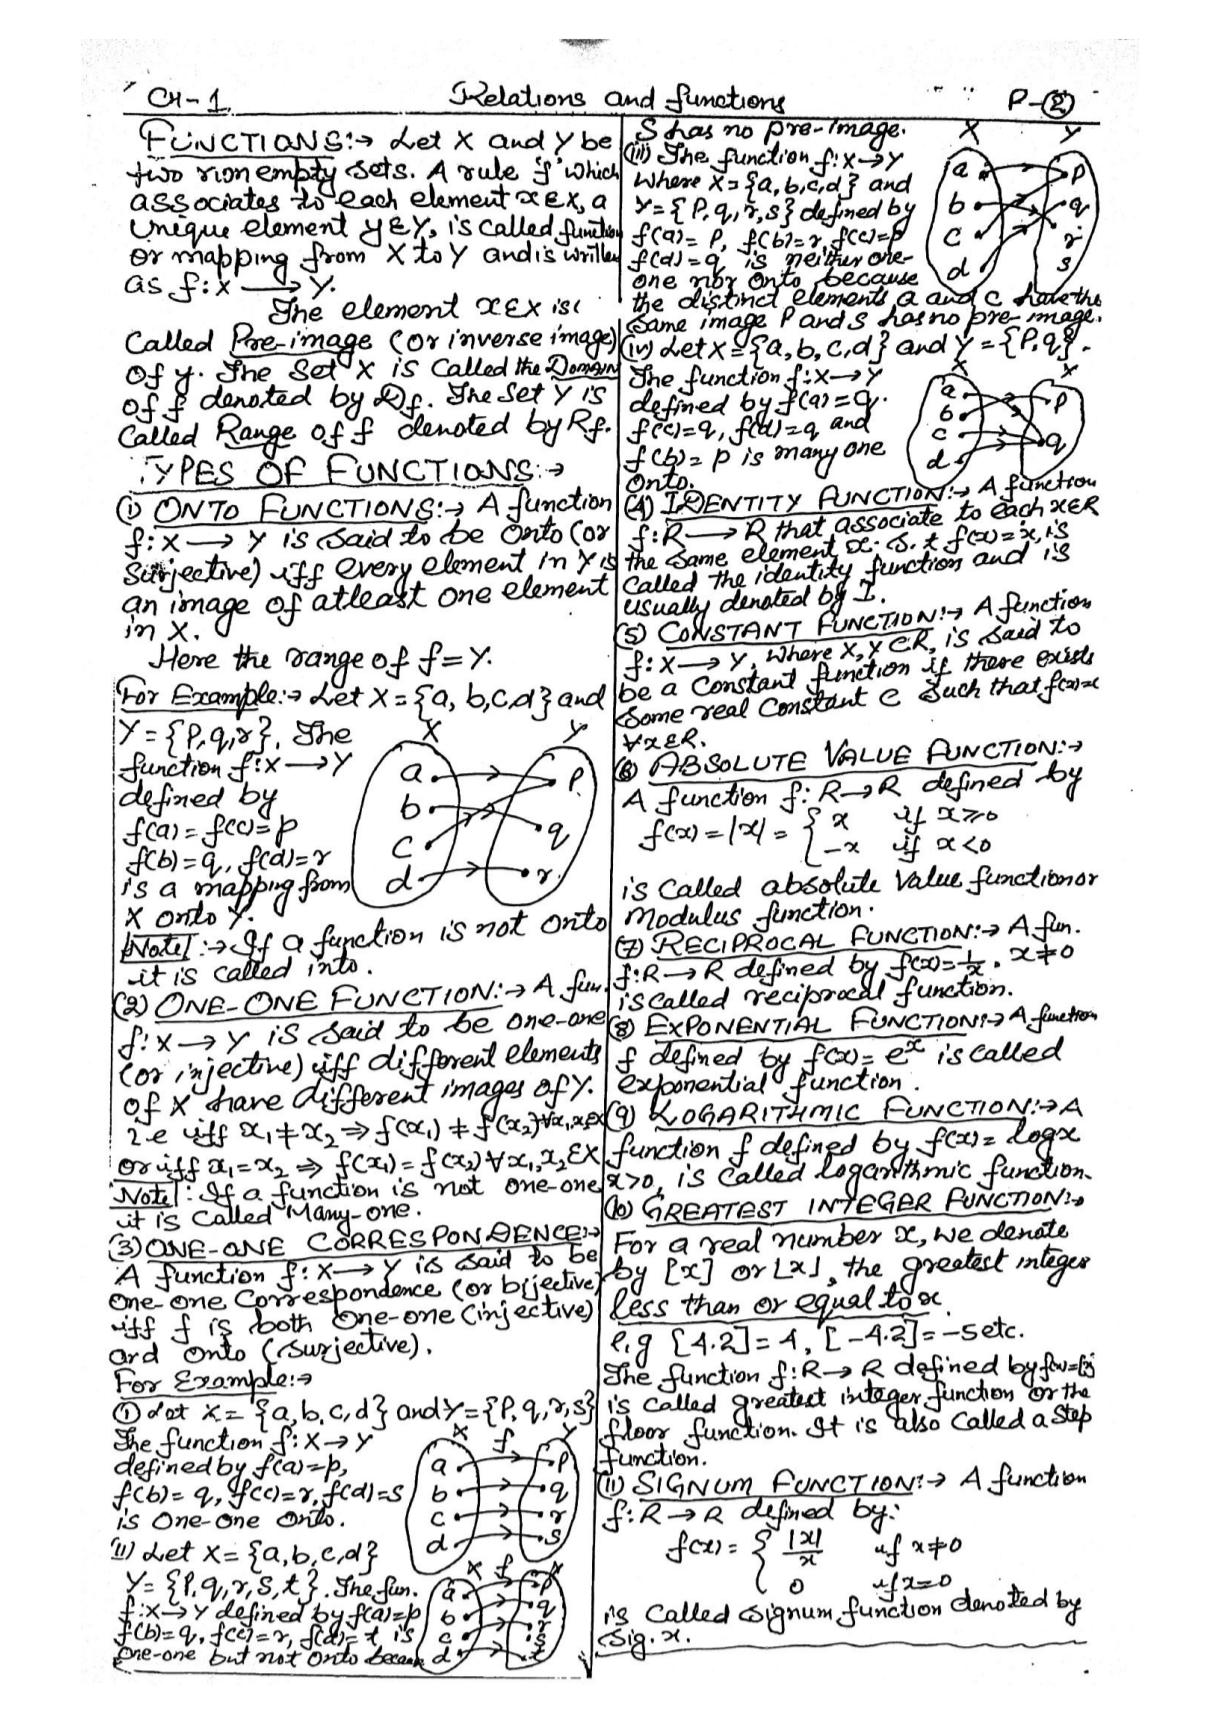 CH-1. Relations and functions P-②
FUNCTIONS:→ Let X and Y be
two non empty sets. A rule 'f' which
associates to each element x∈X, a
unique element y∈Y, is called function
or mapping from X to Y and is written
as f:X ⟶ Y.
The element x∈X is
Called Pre-image (or inverse image)
of y. The Set X is Called the DOMAIN
of f denoted by Df. The Set Y is
Called Range of f denoted by Rf.
TYPES OF FUNCTIONS:→
(1) ONTO FUNCTIONS:→ A function
f:X ⟶ Y is said to be Onto (or
Surjective) iff every element in Y is
an image of atleast one element
in X.
Here the range of f=Y.
For Example:→ Let X={a, b,c,d} and
Y={P,q,r}. The
function f:X⟶Y
defined by
f(a)=f(c)=p
f(b)=q, f(d)=r
is a mapping from
X onto Y.
X Y
a p
b q
c
d r
Note:→ If a function is not onto
it is called into.
(2) ONE-ONE FUNCTION:→ A fun.
f:X→Y is said to be one-one
(or injective) iff different elements
of X have different images of Y.
i.e iff x₁≠x₂ ⇒ f(x₁)≠f(x₂)∀x₁,x₂∈X
or iff x₁=x₂ ⇒ f(x₁)=f(x₂)∀x₁,x₂∈X
Note: If a function is not one-one
it is Called Many-one.
(3) ONE-ONE CORRESPONDENCE:→
A function f:X⟶Y is said to be
One-one Correspondence (or bijective)
iff f is both One-one (injective)
and Onto (surjective).
For Example:→
(i) Let X={a,b,c,d} and Y={P,q,r,s}
The function f:X→Y
defined by f(a)=p,
f(b)=q, f(c)=r, f(d)=s
is One-One Onto.
X f Y
a p
b q
c r
d s
(ii) Let X={a,b,c,d}
Y={P,q,r,s,t}. The fun.
f:X→Y defined by f(a)=p
f(b)=q, f(c)=r, f(d)=t is
one-one but not Onto because
X f Y
a p
b q
c r
s
d t
S has no pre-image.
(iii) The function f:X→Y
where X={a,b,c,d} and
Y={P,q,r,s} defined by
f(a)=P, f(b)=r, f(c)=p
f(d)=q is neither one-
one nor onto because
the distinct elements a and c have the
same image P and S has no pre-image.
X Y
a p
b q
c r
d s
(iv) Let X={a,b,c,d} and Y={P,q}.
The function f:X→Y
defined by f(a)=q.
f(c)=q, f(d)=q and
f(b)=p is many one
Onto.
X Y
a p
b
c q
d
(4) IDENTITY FUNCTION:→ A function
f:R⟶R that associate to each x∈R
the same element x. s.t f(x)=x, is
called the identity function and is
usually denoted by I.
(5) CONSTANT FUNCTION:→ A function
f:X⟶Y, where X,Y⊂R, is said to
be a Constant function if there exists
some real Constant c such that f(x)=c
∀x∈R.
(6) ABSOLUTE VALUE FUNCTION:→
A function f:R→R defined by
f(x)=|x|= { x if x≥0
-x if x<0
is Called absolute Value function or
Modulus function.
(7) RECIPROCAL FUNCTION:→ A fun.
f:R→R defined by f(x)=1/x. x≠0
is called reciprocal function.
(8) EXPONENTIAL FUNCTION:→ A function
f defined by f(x)=eˣ is called
exponential function.
(9) LOGARITHMIC FUNCTION:→ A
function f defined by f(x)=logx
x>0, is called logarithmic function.
(10) GREATEST INTEGER FUNCTION:→
For a real number x, we denote
by [x] or ⌊x⌋, the greatest integer
less than or equal to x.
e.g [4.2]=4, [-4.2]=-5 etc.
The function f:R→R defined by f(x)=[x]
is called greatest integer function or the
floor function. It is also called a Step
function.
(11) SIGNUM FUNCTION:→ A function
f:R→R defined by:
f(x)= { |x|/x if x≠0
0 if x=0
is Called signum function denoted by
Sig.x.